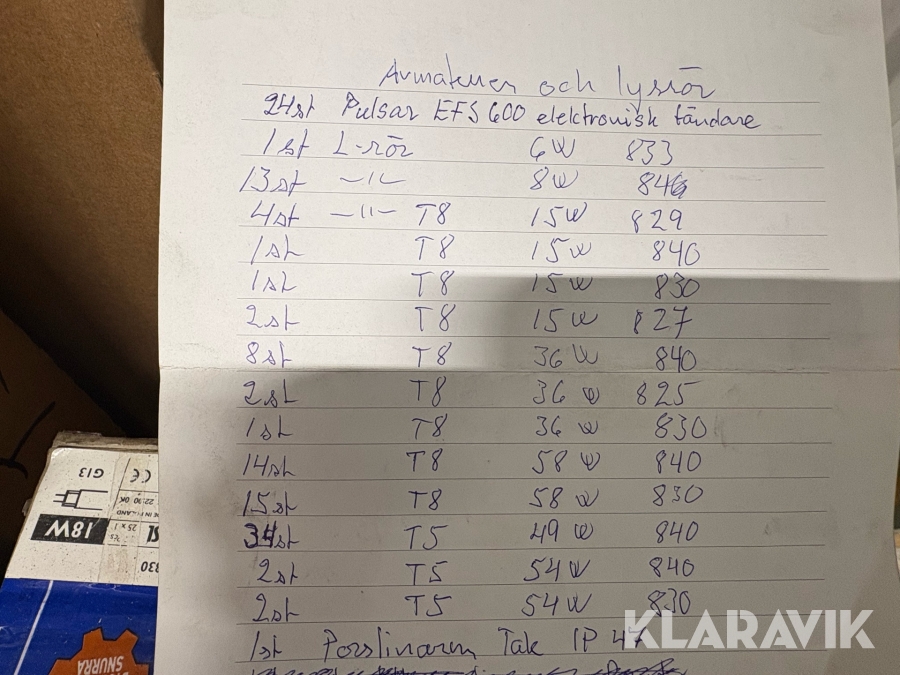 Armaturer och lysrör
24st Pulsar EFS 600 elektronisk tändare
1st L-rör 6W 833
13st -11- 8W 840
4st -11- T8 15W 829
1st T8 15W 840
1st T8 15W 830
2st T8 15W 827
8st T8 36W 840
2st T8 36W 825
1st T8 36W 830
14st T8 58W 840
15st T8 58W 830
34st T5 49W 840
2st T5 54W 840
2st T5 54W 830
1st Porslinarm Tak IP 47
KLARAVIK
G13
CE
18W
25 x 1
830
SNURRA